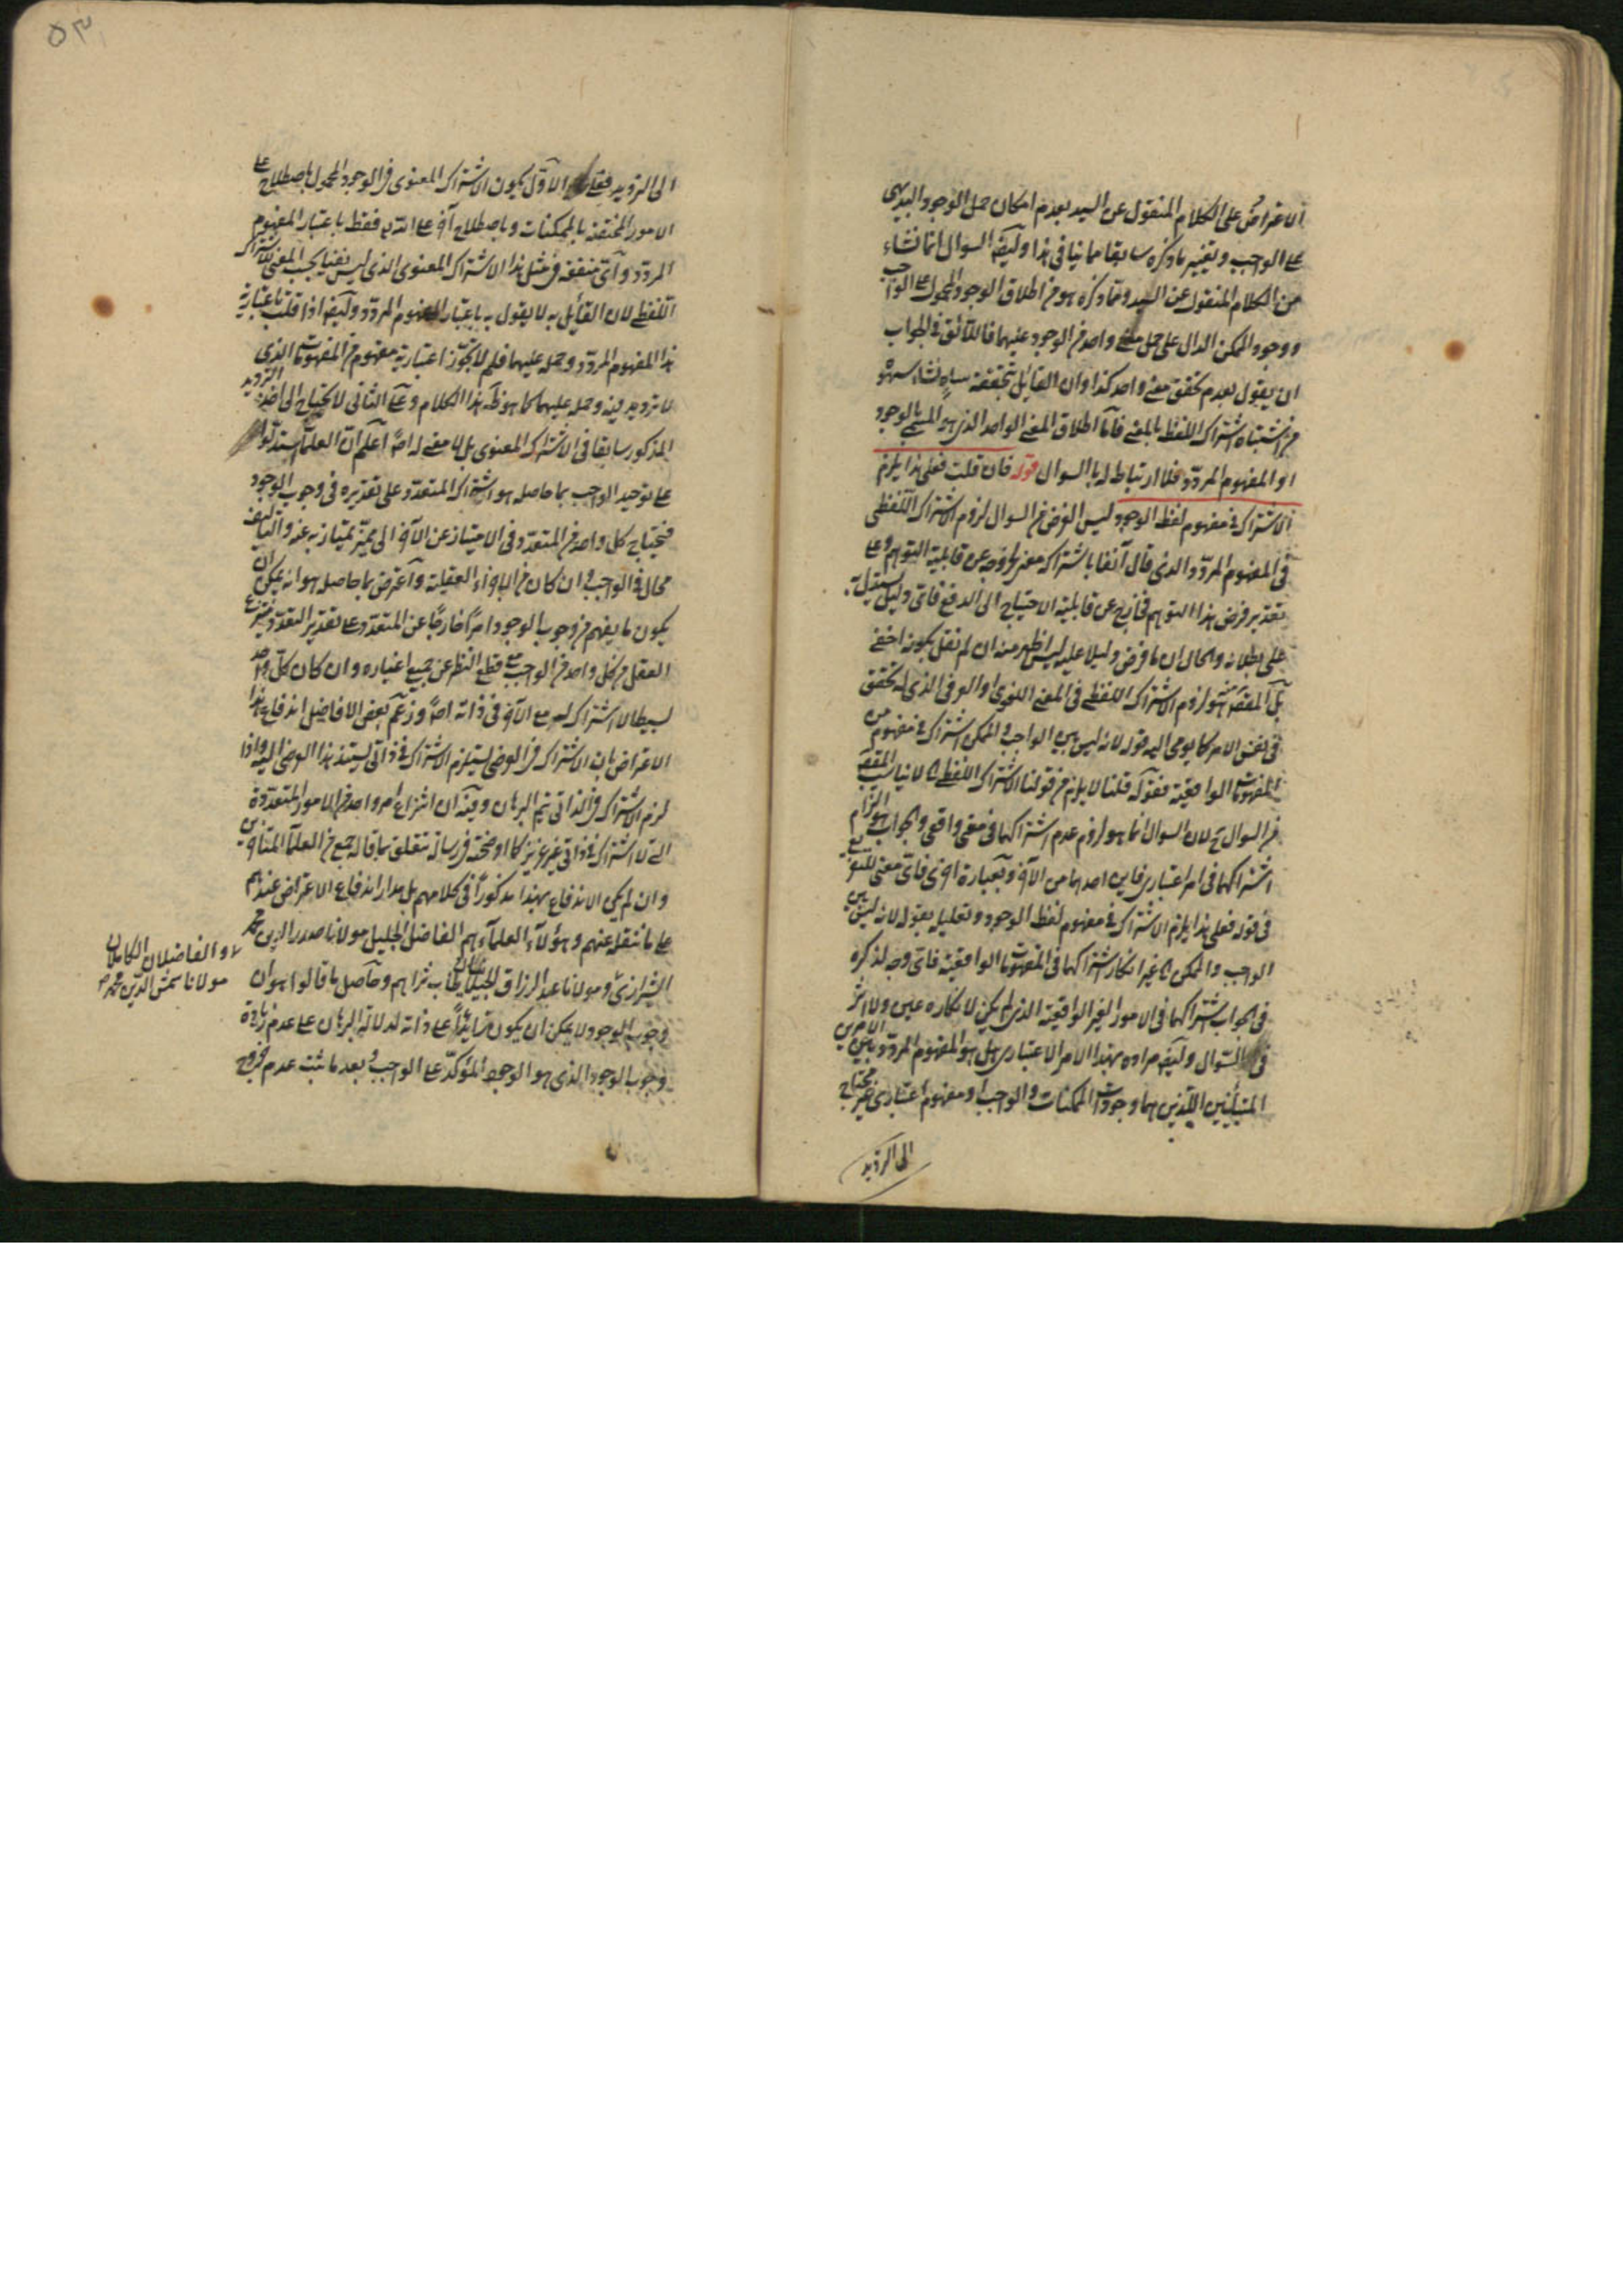 الاعتراض على الكلام المنقول عن السيد بعدم امكان حمل الوجود البديهى
على الواجب وتغيير ما ذكره سابقا مما ينافى هذا وايضا السوال انما نشاء
من الكلام المنقول عن السيد ومما ذكره هو من اطلاق الوجود المحمول على الواجب
ووجود الممكن الدال على حمل معنى واحد من الوجود عليهما فاللائق فى الجواب
ان يقول بعدم تحقق معنى واحد كذا وان القائل بتحققه ساه نشاء سهوه
من اشتباه اشتراك اللفظ بالمعنى فاما اطلاق المعنى الواحد الذى هو المسمى بالوجود
او المفهوم المردد فلا ارتباط له بالسوال قوله فان قلت فعلى هذا يلزم
الاشتراك فى مفهوم لفظ الوجود ليس الغرض من السوال لزوم الاشتراك اللفظى
فى المفهوم المردد الذى قال آنفا باشتراك معنى لخروجه عن قابلية التوهم وعلى
تقدير فرض هذا التوهم فخارج عن قابلية الاحتياج الى الدفع فاى دليل يستدل به
على بطلانه والحال ان ما فرض دليلا عليه ليس اظهر منه ان لم نقل بكونه اخفى
بل المقصد منه هو لزوم الاشتراك اللفظى فى المعنى اللغوى او العرفى الذى له تحقق
فى نفس الامر كما يومى اليه قوله لانه ليس بين الواجب والممكن اشتراك فى مفهوم من
المفهومات الواقعية فقوله قلنا لا يلزم من قولنا الاشتراك اللفظى لا يناسب المقصد
من السوال لان السوال انما هو لزوم عدم اشتراكهما فى معنى واقعى والجواب هو التزام
اشتراكهما فى امر اعتبارى فاين احدهما من الآخر وبعبارة اخرى فاى معنى للتفريع
فى قوله فعلى هذا يلزم الاشتراك فى مفهوم لفظ الوجود وتعليله بقوله لانه ليس بين
الواجب والممكن غير انكار اشتراكهما فى المفهومات الواقعية فاى وجه لذكره
فى الجواب اشتراكهما فى الامور الغير الواقعية الذى لم يكن لانكاره عين ولا اثر
فى السوال وايضا مراده بهذا الامر الاعتبارى هل هو المفهوم المردد بين الامرين
المتباينين اللذين هما وجودات الممكنات والواجب او مفهوم اعتبارى غير محتاج
الى الترديد
الى الترديد فعلى الاول يكون الاشتراك المعنوى فى الوجود المحمول باصطلاح على
الامور المختصة بالممكنات وباصطلاح آخر على الله فقط باعتبار المفهوم
المردد واى منفعة فى مثل هذا الاشتراك المعنوى الذى ليس نفيا بحسب المعنى للاشتراك
اللفظى لان القائل به لا يقول به باعتبار المفهوم المردد وايضا اذا قلت باعتبارية
هذا المفهوم المردد وحمله عليهما فلم لا تجوز اعتبارية مفهوم من المفهومات الذى
لا ترديد فيه وحمله عليهما كما هو ظاهر هذا الكلام وعلى الثانى لا يحتاج الى اخذ الترديد
المذكور سابقا فى الاشتراك المعنوى بل لا معنى له اصلا اعلم ان العلماء استدلوا
على توحيد الواجب بما حاصله هو اشتراك المتعدد على تقديره فى وجوب الوجود
فيحتاج كل واحد من المتعدد فى الامتياز عن الآخر الى مميز يمتاز به عنه والتاليف
محال فى الواجب وان كان من الاجزاء العقلية واعترض بما حاصله هو انه يمكن ان
يكون ما يفهم من وجوب الوجود امرا خارجا عن المتعدد على تقدير التعدد فينتزع
العقل من كل واحد من الواجب مع قطع النظر عن جميع اغياره وان كان كل واحد
بسيطا لا اشتراك له مع الآخر فى ذاته اصلا وزعم بعض الافاضل اندفاع هذا
الاعتراض بان الاشتراك فى العرضى يستلزم الاشتراك فى ذاتى يستند هذا العرضى اليه واذا
لزم الاشتراك فى الذاتى يتم البرهان وفيه ان انتزاع امر واحد من الامور المتعددة
التى لا اشتراك فى ذاتى غير عزيز كما اوضحته فى رسالة تتعلق بما قاله جمع من العلماء المتاخرين
وان لم يكن الاندفاع بهذا مذكورا فى كلامهم بل مدار اندفاع الاعتراض عندهم
على ما ننقله عنهم وهؤلاء العلماء هم الفاضل الجليل مولانا صدر الدين محمد
الشيرازى ومولانا عبد الرزاق الجيلانى طاب ثراهم وحاصل ما قالوا هو ان
وجوب الوجود لا يمكن ان يكون زايدا على ذاته لدلالة البرهان على عدم زيادة
وجوب الوجود الذى هو الوجود المؤكد على الواجب وبعد ما ثبت عدم خروج
والفاضلان الكاملان
مولانا شمس الدين محمد